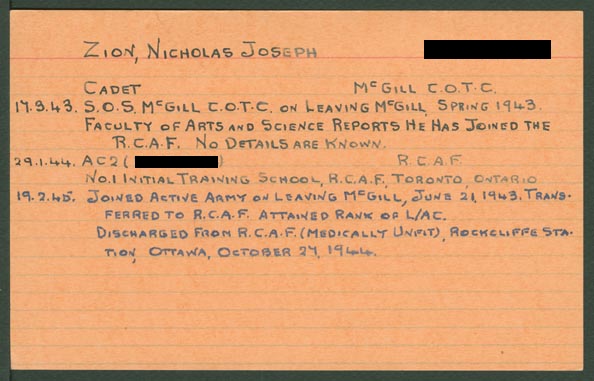 ZION, NICHOLAS JOSEPH
CADET McGILL C.O.T.C.
17.9.43. S.O.S. McGILL C.O.T.C. ON LEAVING McGILL, SPRING 1943.
FACULTY OF ARTS AND SCIENCE REPORTS HE HAS JOINED THE
R.C.A.F. NO DETAILS ARE KNOWN.
29.1.44. AC2 ( ) R.C.A.F.
NO.1 INITIAL TRAINING SCHOOL, R.C.A.F., TORONTO, ONTARIO
19.2.45. JOINED ACTIVE ARMY ON LEAVING McGILL, JUNE 21, 1943. TRANS-
FERRED TO R.C.A.F. ATTAINED RANK OF L/AC.
DISCHARGED FROM R.C.A.F. (MEDICALLY UNFIT), ROCKCLIFFE STA-
TION, OTTAWA, OCTOBER 27, 1944.